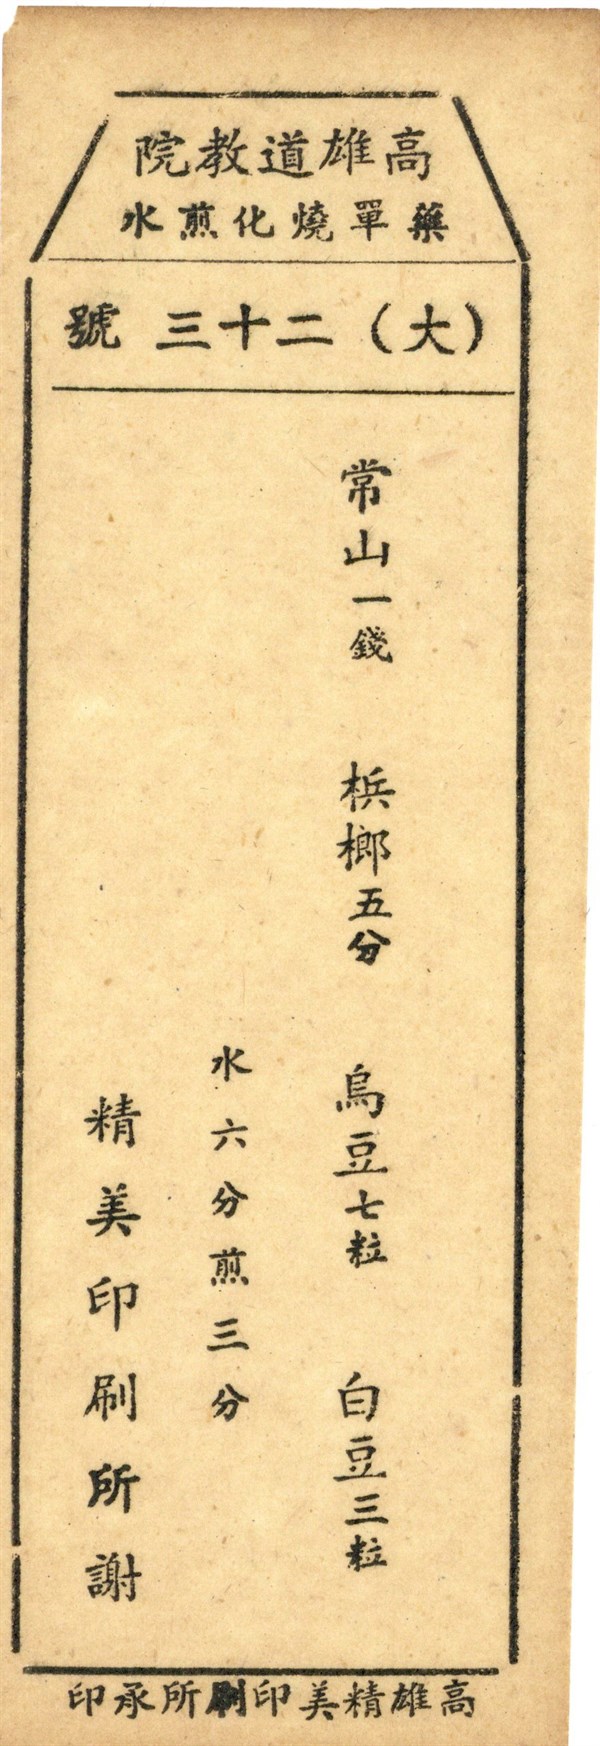 高雄道教院
藥單燒化煎水
（大）二十三號
常山一錢　梹榔五分　烏豆七粒　白豆三粒
水六分煎三分
精美印刷所謝
高雄精美印刷所承印